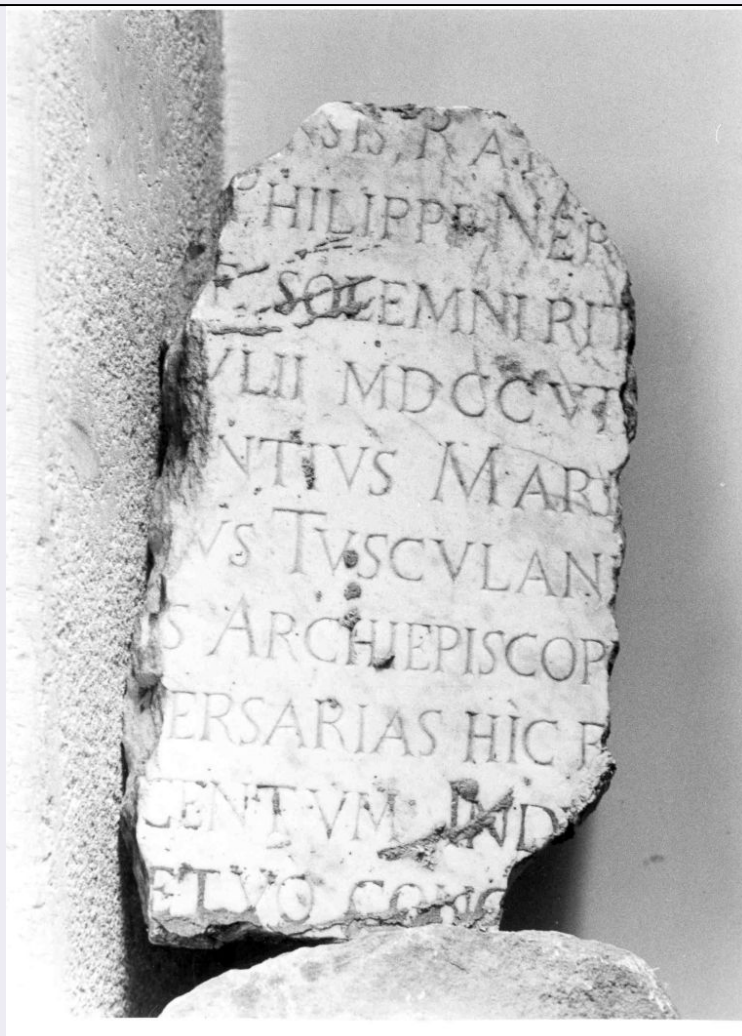 NSIS, RA
HILIPPI NER
SOLEMNI RIT
VLII MDCCVI
NTIVS MARI
VS TVSCVLAN
S ARCHIEPISCOP
ERSARIAS HÌC
CENTVM IND
ETVO CONC